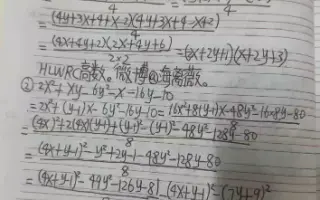 (4y+3x+4+x-2)(4y+3x+4-x+2)
4
(4x+4y+2)(2x+4y+6) =(2x+2y+1)(x+2y+3)
2×2
HLWRC高数。微博@海离薇。
② 2x²+xy-6y²-x-16y-10
=2x²+(y-1)x-6y²-16y-10=16x²+8(y-1)x-48y²-128y-80
8
=(4x)²+2(4x)(y-1)+(y-1)²-(y-1)²-48y²-128y-80
8
=(4x+y-1)²-y²+2y-1-48y²-128y-80
8
=(4x+y-1)²-49y²-126y-81 (4x+y-1)²-(7y+9)²